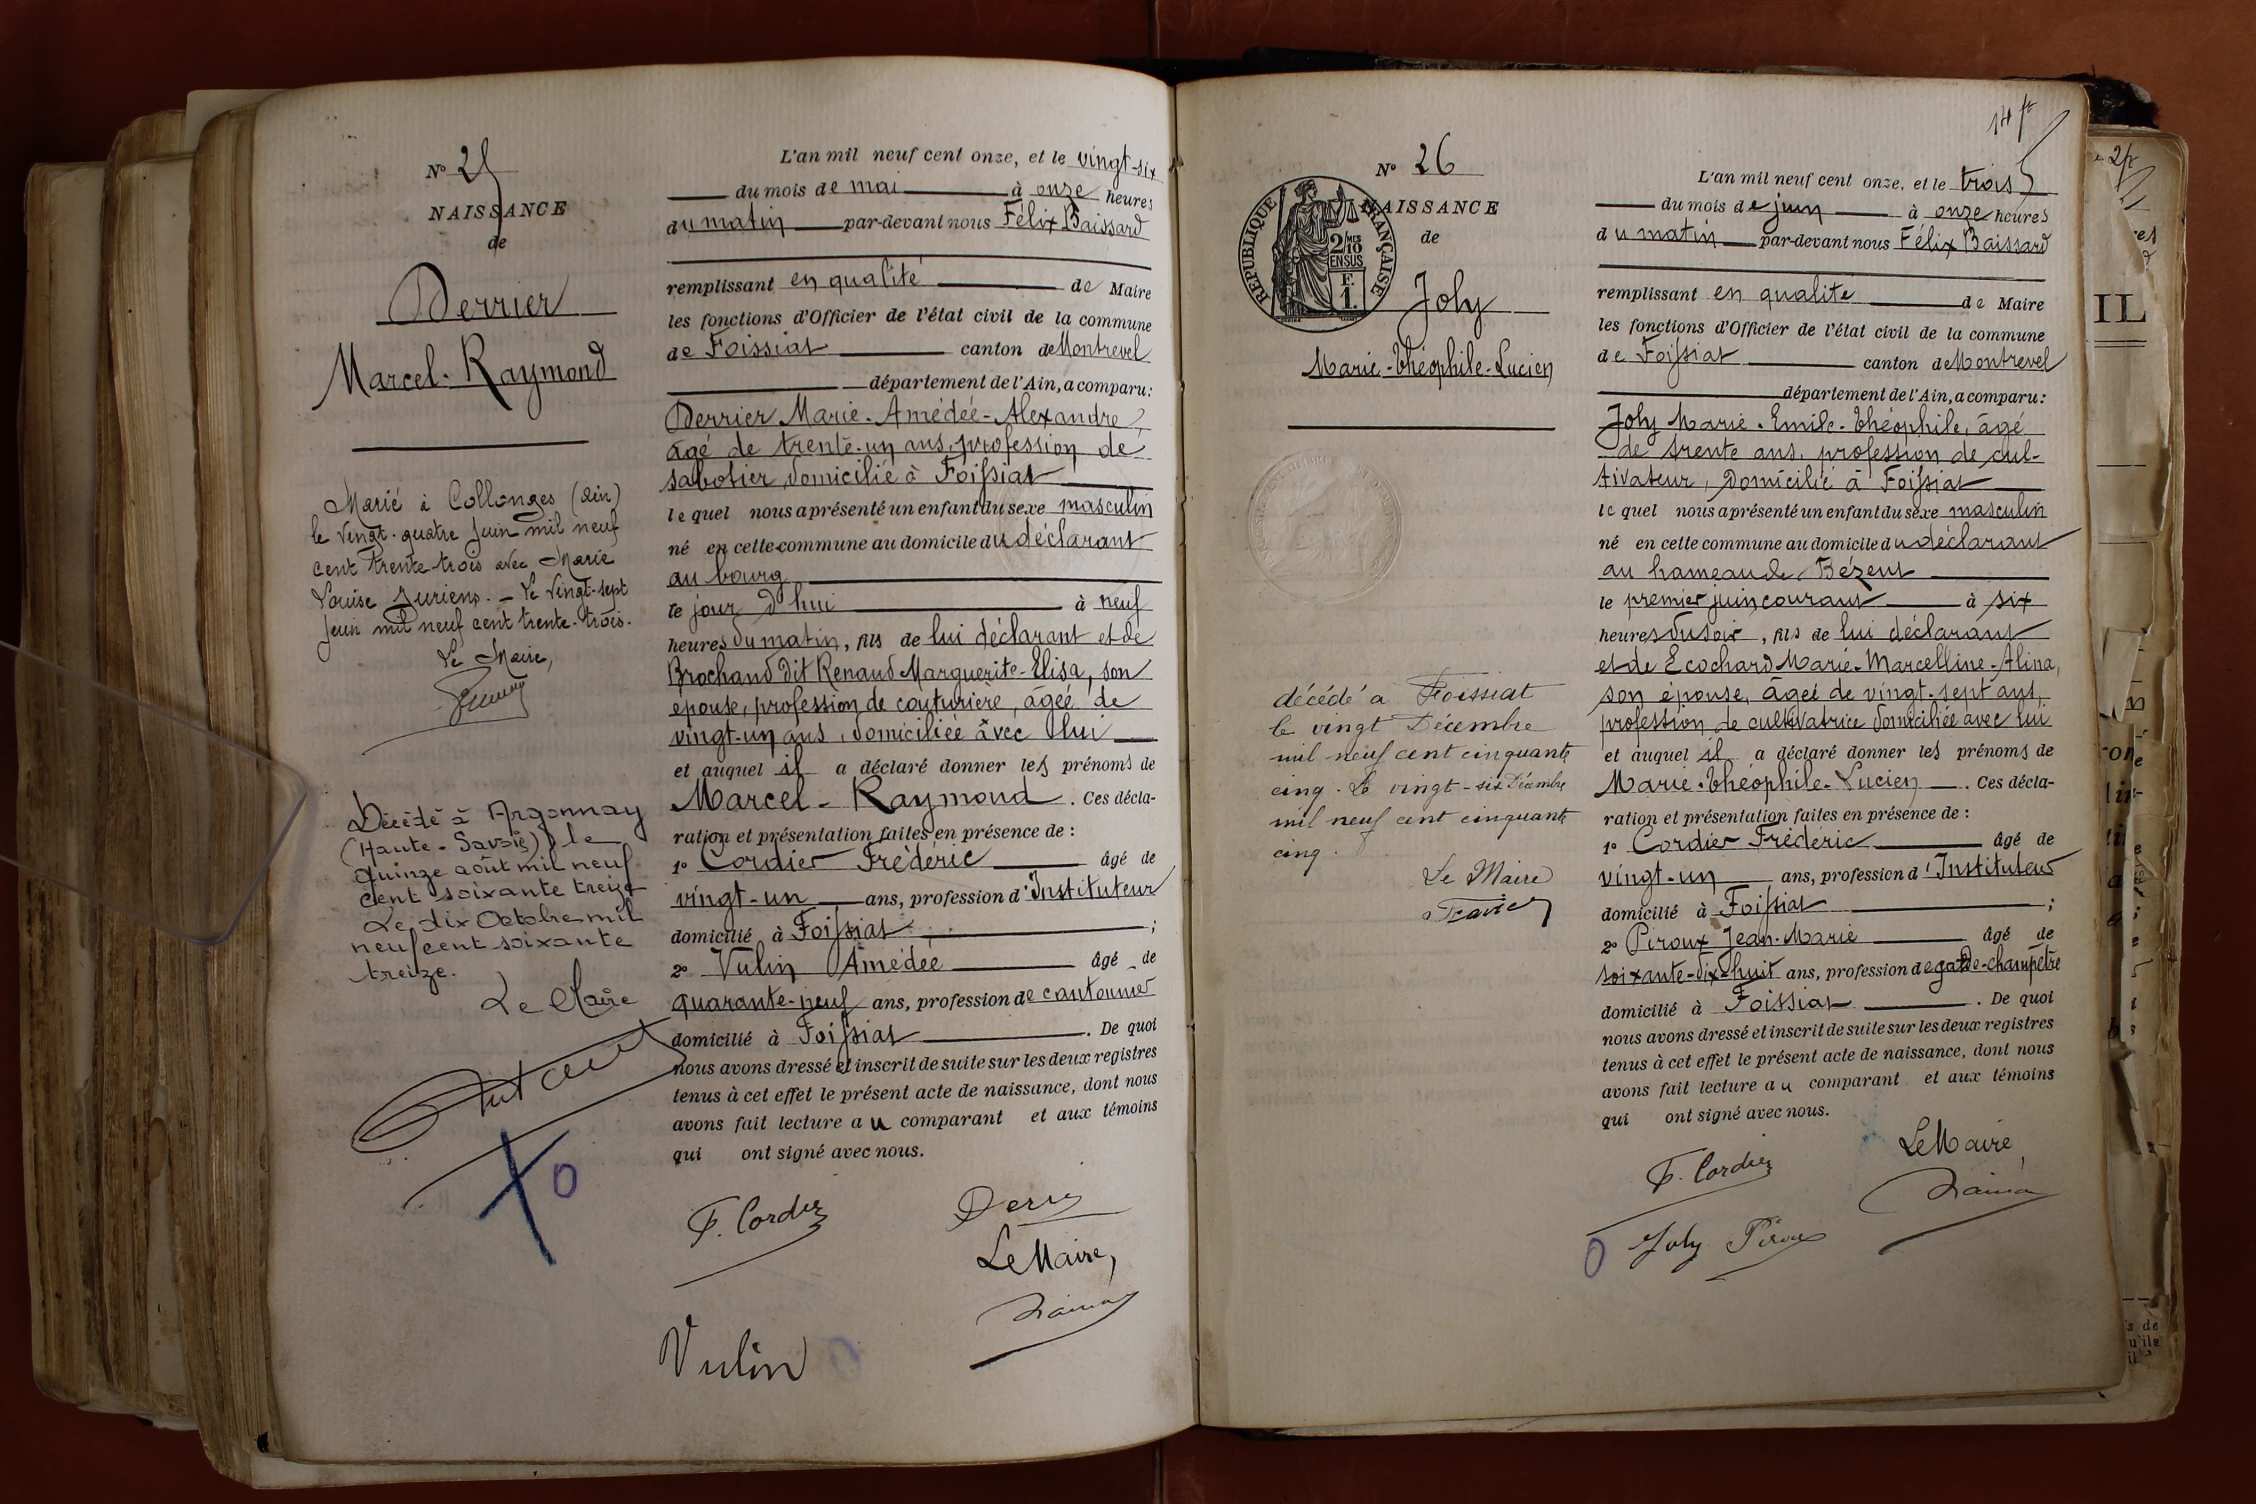 N° 25
NAISSANCE
de
Derrier
Marcel-Raymond
Marié à Collonges (Ain)
le vingt-quatre Juin mil neuf
cent trente-trois avec Marie
Louise . - Le vingt-sept
Juin mil neuf cent trente-trois.
Le Maire,
Décédé à Argonnay
(Haute-Savoie) le
quinze août mil neuf
cent soixante treize
Le dix Octobre mil
neuf cent soixante
treize.
Le Maire
L'an mil neuf cent onze, et le vingt-six
du mois de mai à onze heures
du matin par-devant nous Félix Baissard
remplissant en qualité de Maire
les fonctions d'Officier de l'état civil de la commune
de Foissiat canton de Montrevel
département de l'Ain, a comparu:
Derrier Marie-Amédée-Alexandre,
âgé de trente-un ans, profession de
sabotier, domicilié à Foissiat
lequel nous a présenté un enfant du sexe masculin
né en cette commune au domicile du déclarant
au bourg
le jour d'hui à neuf
heures du matin, fils de lui déclarant et de
Brochand dit Renaud Marguerite-Elisa, son
épouse, profession de couturière, âgée de
vingt-un ans, domiciliée avec lui
et auquel il a déclaré donner les prénoms de
Marcel-Raymond. Ces décla-
ration et présentation faites en présence de :
1° Cordier Frédéric âgé de
vingt-un ans, profession d'Instituteur
domicilié à Foissiat ;
2° Vulin Amédée âgé de
quarante-neuf ans, profession de cantonnier
domicilié à Foissiat. De quoi
nous avons dressé et inscrit de suite sur les deux registres
tenus à cet effet le présent acte de naissance, dont nous
avons fait lecture au comparant et aux témoins
qui ont signé avec nous.
F. Cordier
Le Maire,
Vulin
14 ft
N° 26
NAISSANCE
de
RÉPUBLIQUE FRANÇAISE
2/10 MES
EN SUS
F.
1.
Joly
Marie-Théophile-Lucien
décédé à Foissiat
le vingt Décembre
mil neuf cent cinquante
cinq. Le vingt-six Décembre
mil neuf cent cinquante
cinq.
Le Maire
L'an mil neuf cent onze, et le trois
du mois de juin à onze heures
du matin par-devant nous Félix Baissard
remplissant en qualité de Maire
les fonctions d'Officier de l'état civil de la commune
de Foissiat canton de Montrevel
département de l'Ain, a comparu:
Joly Marie-Emile-Théophile, âgé
de trente ans, profession de cul-
tivateur, domicilié à Foissiat
lequel nous a présenté un enfant du sexe masculin
né en cette commune au domicile du déclarant
au hameau de Bézent
le premier juin courant à six
heures du soir, fils de lui déclarant
et de Ecochard Marie-Marcelline-Alina,
son épouse, âgée de vingt-sept ans,
profession de cultivatrice domiciliée avec lui
et auquel il a déclaré donner les prénoms de
Marie-Théophile-Lucien. Ces décla-
ration et présentation faites en présence de :
1° Cordier Frédéric âgé de
vingt-un ans, profession d'Instituteur
domicilié à Foissiat ;
2° Piroux Jean-Marie âgé de
soixante-dix-huit ans, profession de garde-champêtre
domicilié à Foissiat. De quoi
nous avons dressé et inscrit de suite sur les deux registres
tenus à cet effet le présent acte de naissance, dont nous
avons fait lecture au comparant et aux témoins
qui ont signé avec nous.
F. Cordier
Le Maire,
Joly Piroux